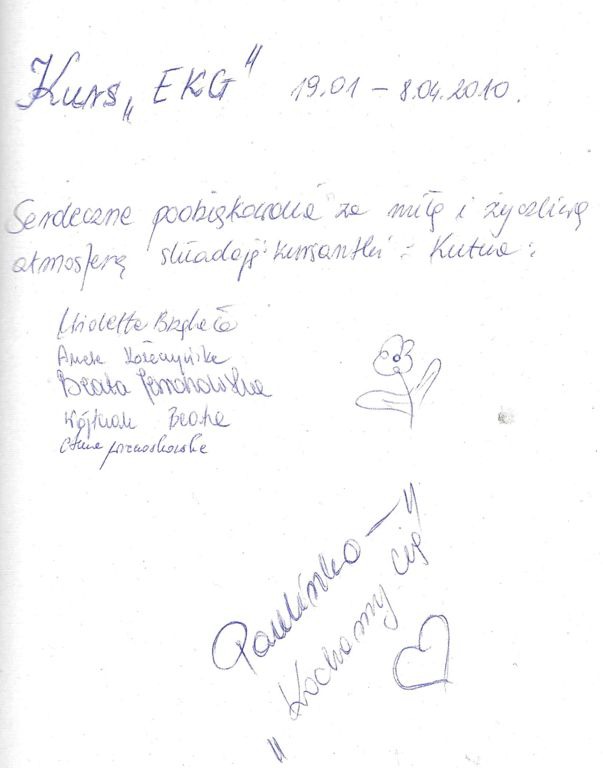 Kurs „EKG" 19.01 – 8.04.2010.
Serdeczne podziękowania za miłą i życzliwą
atmosferę składają kursantki z Kutna:
Wioletta
Aneta
Beata
Wójtiak Beata
Paulinko –
„Kochamy Cię"